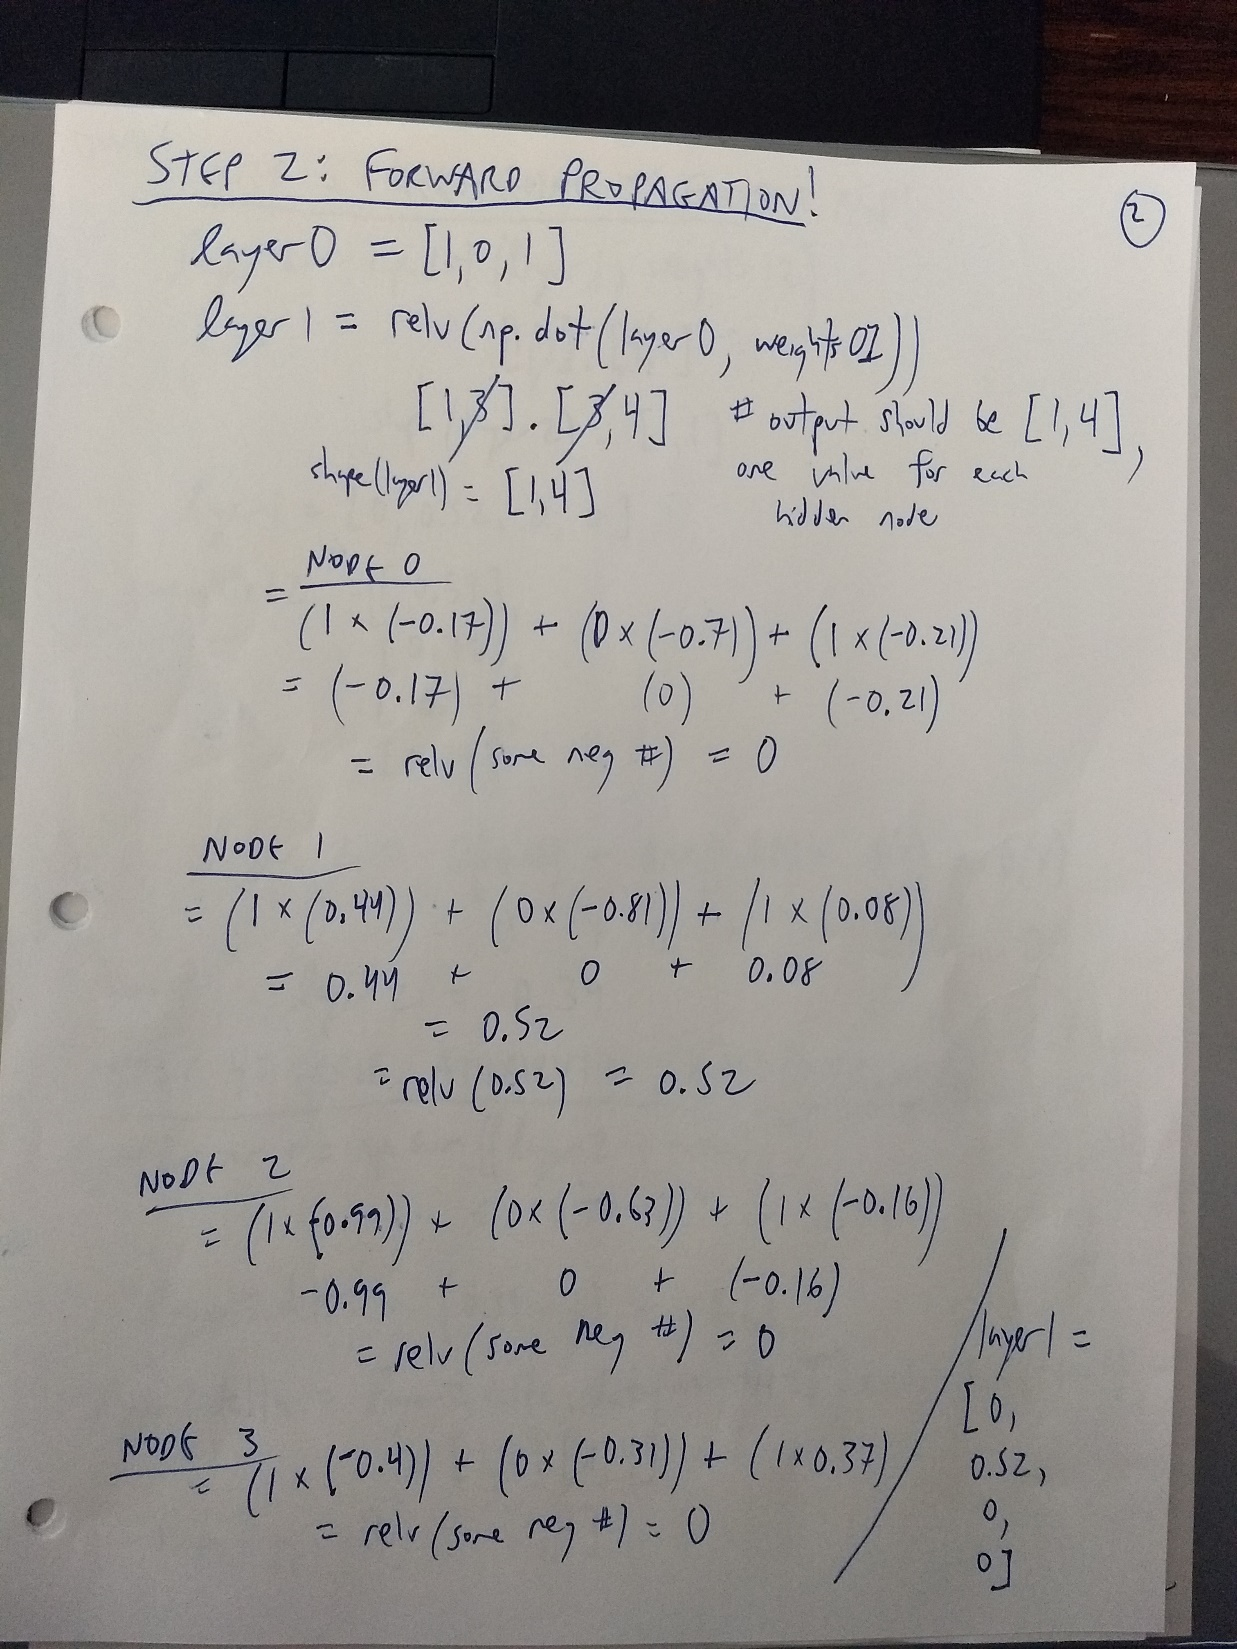 STEP 2: FORWARD PROPAGATION!
2
layer0 = [1,0,1]
layer1 = relu(np.dot(layer0, weights01))
[1,3].[3,4] # output should be [1,4],
one value for each
hidden node
shape(layer1) = [1,4]
NODE 0
= (1 x (-0.17)) + (0 x (-0.7)) + (1 x (-0.21))
= (-0.17) + (0) + (-0.21)
= relu (some neg #) = 0
NODE 1
= (1 x (0.44)) + (0 x (-0.81)) + (1 x (0.08))
= 0.44 + 0 + 0.08
= 0.52
= relu (0.52) = 0.52
NODE 2
= (1 x (-0.99)) + (0 x (-0.63)) + (1 x (-0.16))
-0.99 + 0 + (-0.16)
= relu (some neg #) = 0
NODE 3
= (1 x (-0.4)) + (0 x (-0.31)) + (1 x 0.37)
= relu (some neg #) = 0
layer1 =
[0,
0.52,
0,
0]